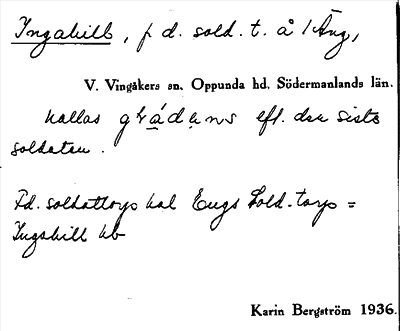 Ingahill, f d. sold. t. å / Äng,
V. Vingåkers sn. Oppunda hd. Södermanlands län.
kallas efl. den siste
soldaten.
F.d. soldattorp kal Engs Sold-torp =
Ingahill kb
Karin Bergström 1936.